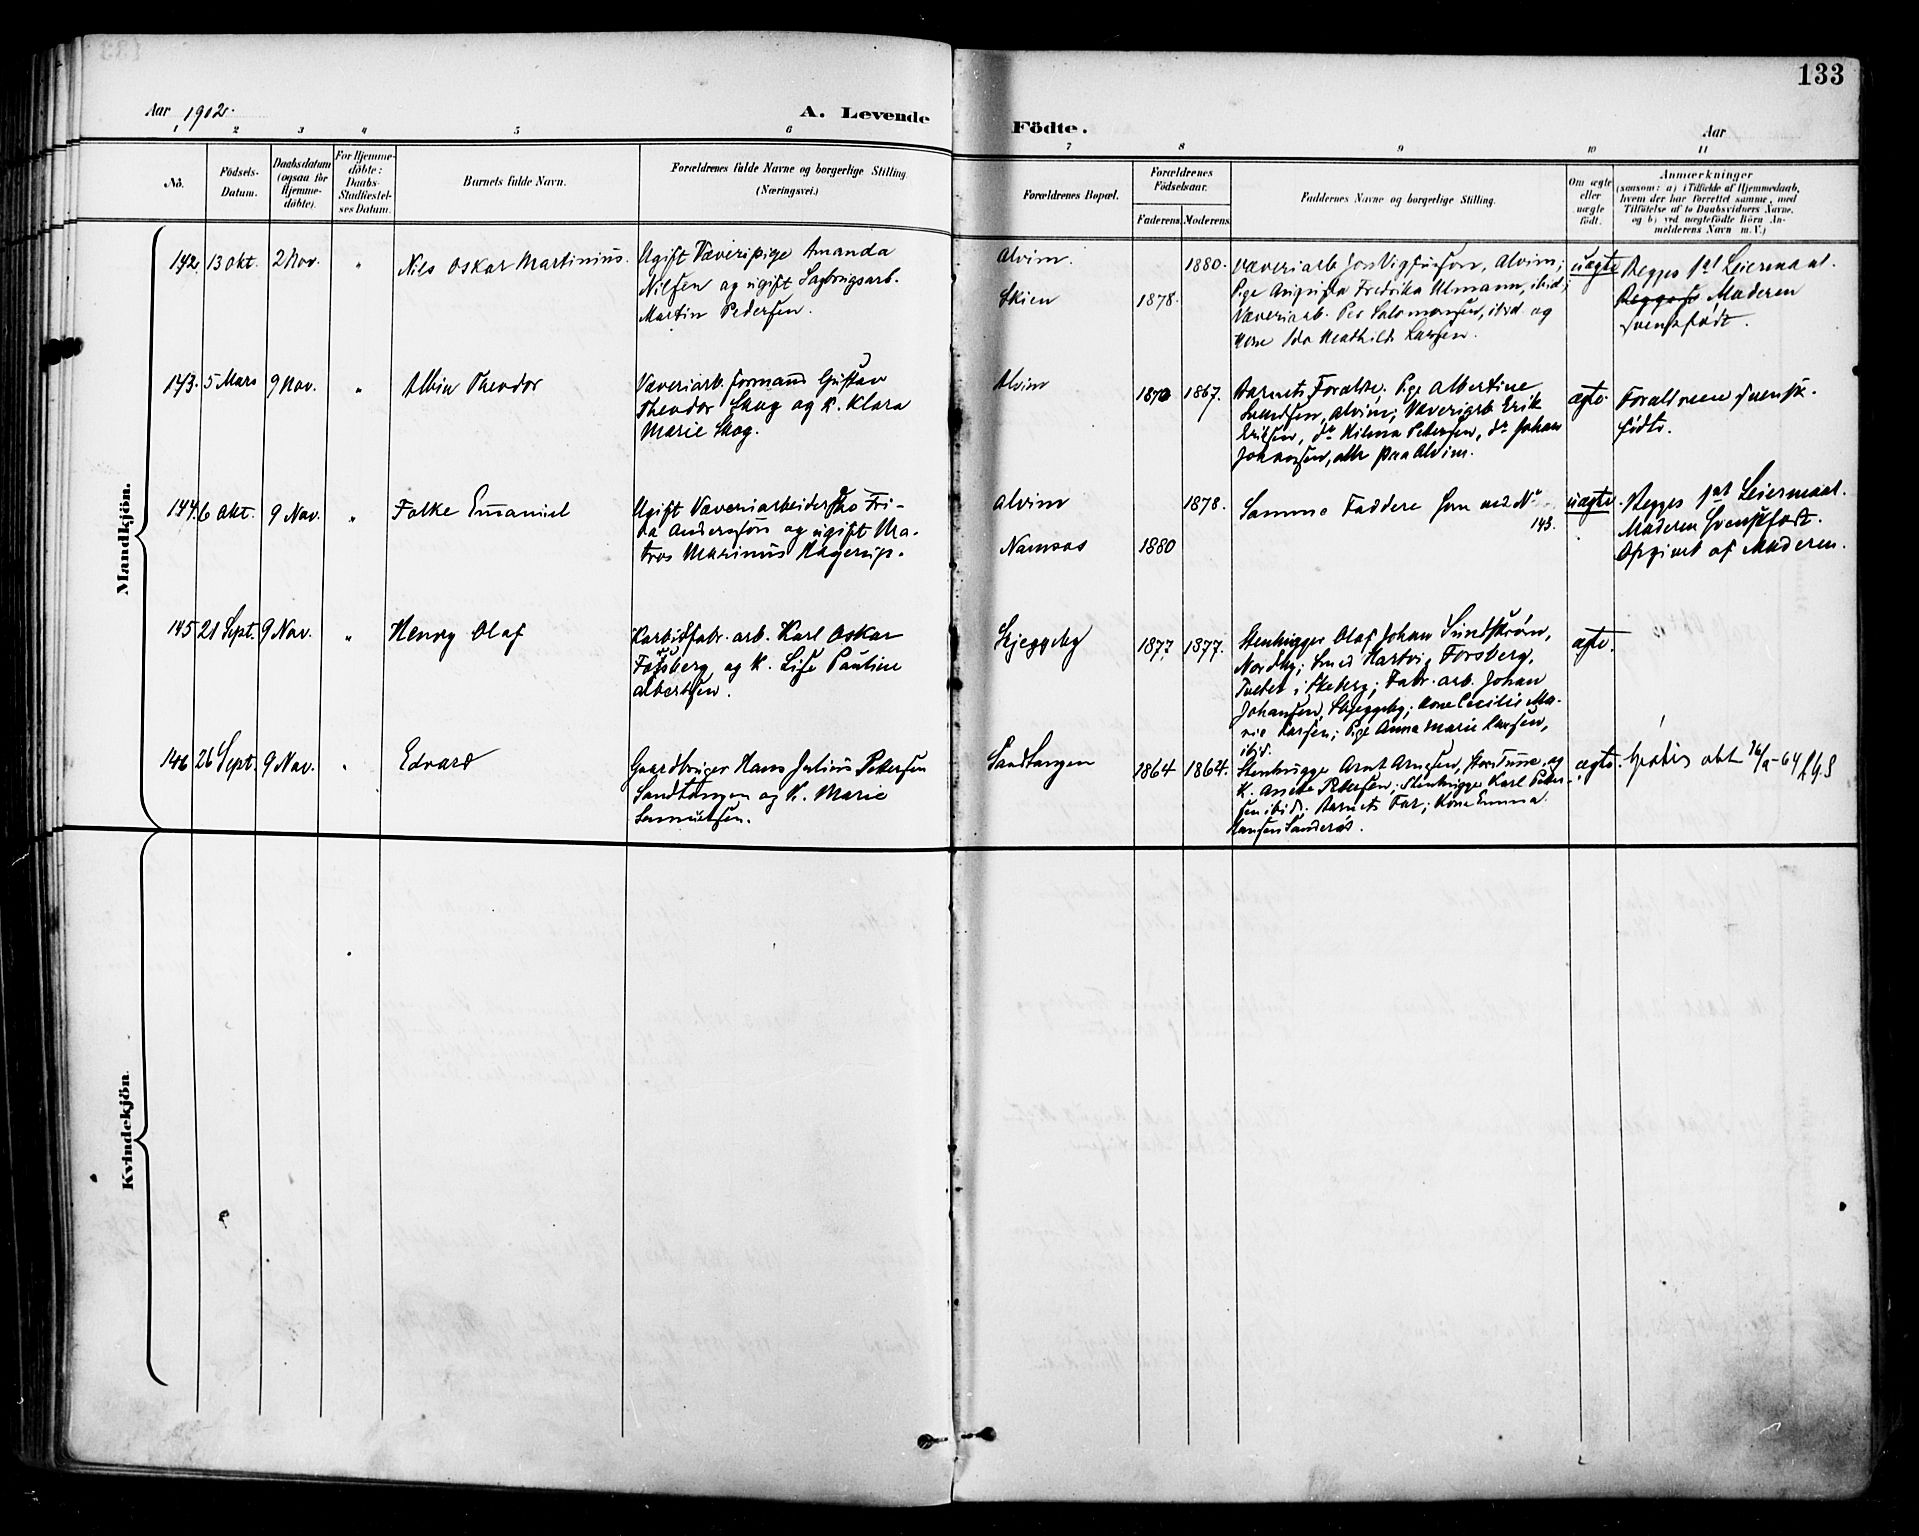 133
Aar 1902.
A. Levende
Födte.
Aar
1 2 3 4 5 6 7 8 9 10 11
No.
Födsels-
Datum.
Daabsdatum
(ogsaa for
Hjemme-
döbte).
For Hjemme-
döbte:
Daabs-
Stadfæstel-
ses Datum.
Barnets fulde Navn.
Forældrenes fulde Navne og borgerlige Stilling.
(Næringsvei.)
Forældrenes Bopæl.
Forældrenes
Födselsaar.
Faderens.
Moderens.
Faddernes Navne og borgerlige Stilling.
Om ægte
eller
uægte
födt.
Anmærkninger
(saasom: a) i Tilfælde af Hjemmedaab,
hvem der har forrettet samme, med
Tilföielse af to Daabsvidners Navne,
og b) ved uægtefödte Börn An-
melderens Navn m. V.)
Mandkjön.
142. 13 Okt. 2 Nov. " Nils Oskar Martinius.
Ugift Væveripige Amanda
Nilsen og ugift Sagbrugsarb.
Martin Pedersen.
Alvim.
Skien
1878.
1880.
Væveriarb. Alvim;
Pige Augusta Fredrika Ulmann, ibid;
Væveriarb. Per Salomonsen, ibid. og
Kone Ida Mathilde Larsen.
uægte
Begges 1st Leiermaal.
Moderen
svenskfødt.
143. 5 Mars 9 Nov. " Albin Theodor
Væveriarb. formand Gustav
Theodor Skog og K. Klara
Marie Skog.
Alvim
1870
1867.
Barnets Forældre; Pige Albertine
Svendsen, Alvim; Væveriarb. Erik
Eriksen, do Hilma Petersen, do Johan
Johansen, alle paa Alvim.
ægte.
Forældrene svensk-
fødte.
144. 6 Okt. 9 Nov. " Folke Emanuel
Ugift Væveriarbeiderske Fri-
da Andersson og ugift Ma-
tros Marinius Hagerup.
Alvim
Namsos
1880
1878.
Samme Faddere som ved No
143.
uægte
Begges 1st Leiermaal.
Moderen svenskfødt.
Opgivet af Moderen.
145 21 Sept. 9 Nov. " Henry Olaf
Karbidfabr. arb. Karl Oskar
Forsberg og K. Lise Pauline
Albertsen.
Skjeggeby
1877
1877.
Stenhugger Olaf Johan Sundstrøm,
Nordby; Smed Hartvig Forsberg,
Tvetet i Skeberg; Fabr. arb. Johan
Johansen, Skjeggeby; Kone Cecilie Ma-
rie Larsen; Pige Anna Marie Larsen,
ibid.
ægte.
146 26 Sept. 9 Nov. " Edvard
Gaardbruger Hans Julius Petersen
Sandtangen og K. Marie
Samuelsen.
Sandtangen
1864
1864.
Stenhugge Arnt Arnesen, StoreTune, og
K. Anette Petersen; Stenhugge Karl Peter-
sen ibid; Barnets Far; Kone Emma
Hansen Sanderød.
ægte.
Gratis
Kvindekjön.